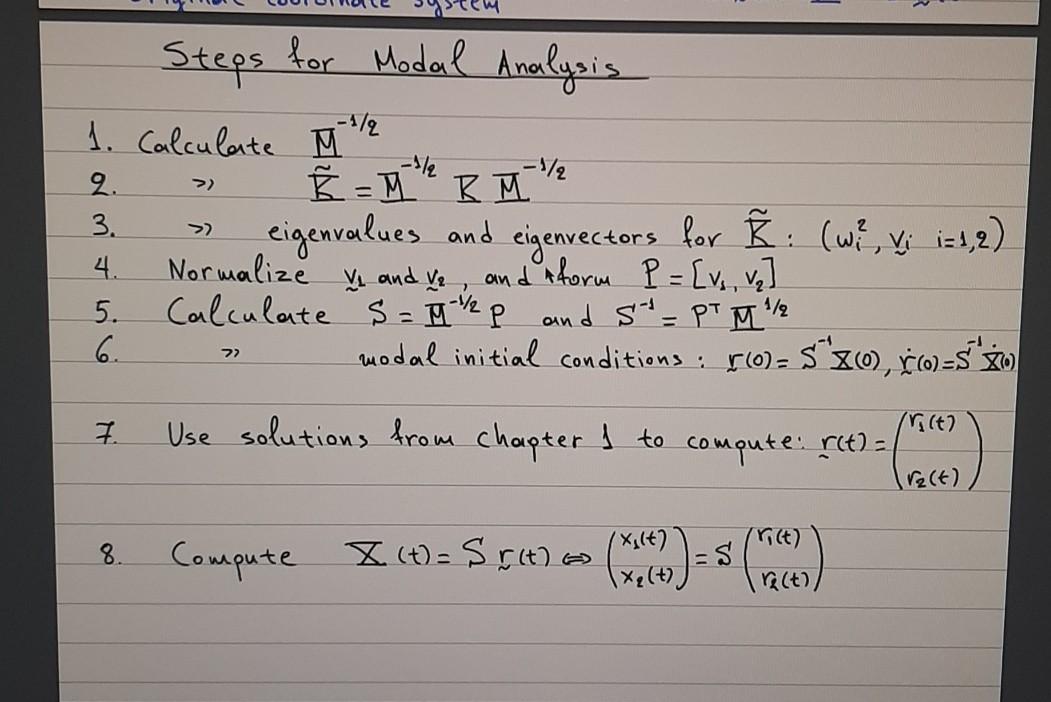 original coordinate system
Steps for Modal Analysis
1. Calculate M^{-1/2}
2. >> K̃ = M^{-1/2} K M^{-1/2}
3. >> eigenvalues and eigenvectors for K̃ : (ω_i², v_i i=1,2)
4. Normalize v_1 and v_2, and form P = [v_1, v_2]
5. Calculate S = M^{-1/2} P and S^{-1} = P^T M^{1/2}
6. >> modal initial conditions : r(0) = S^{-1} X(0), ṙ(0) = S^{-1} Ẋ(0)
7. Use solutions from chapter 1 to compute: r(t) = (r_1(t)
r_2(t))
8. Compute X(t) = S r(t) ⇔ (x_1(t) x_2(t)) = S (r_1(t) r_2(t))